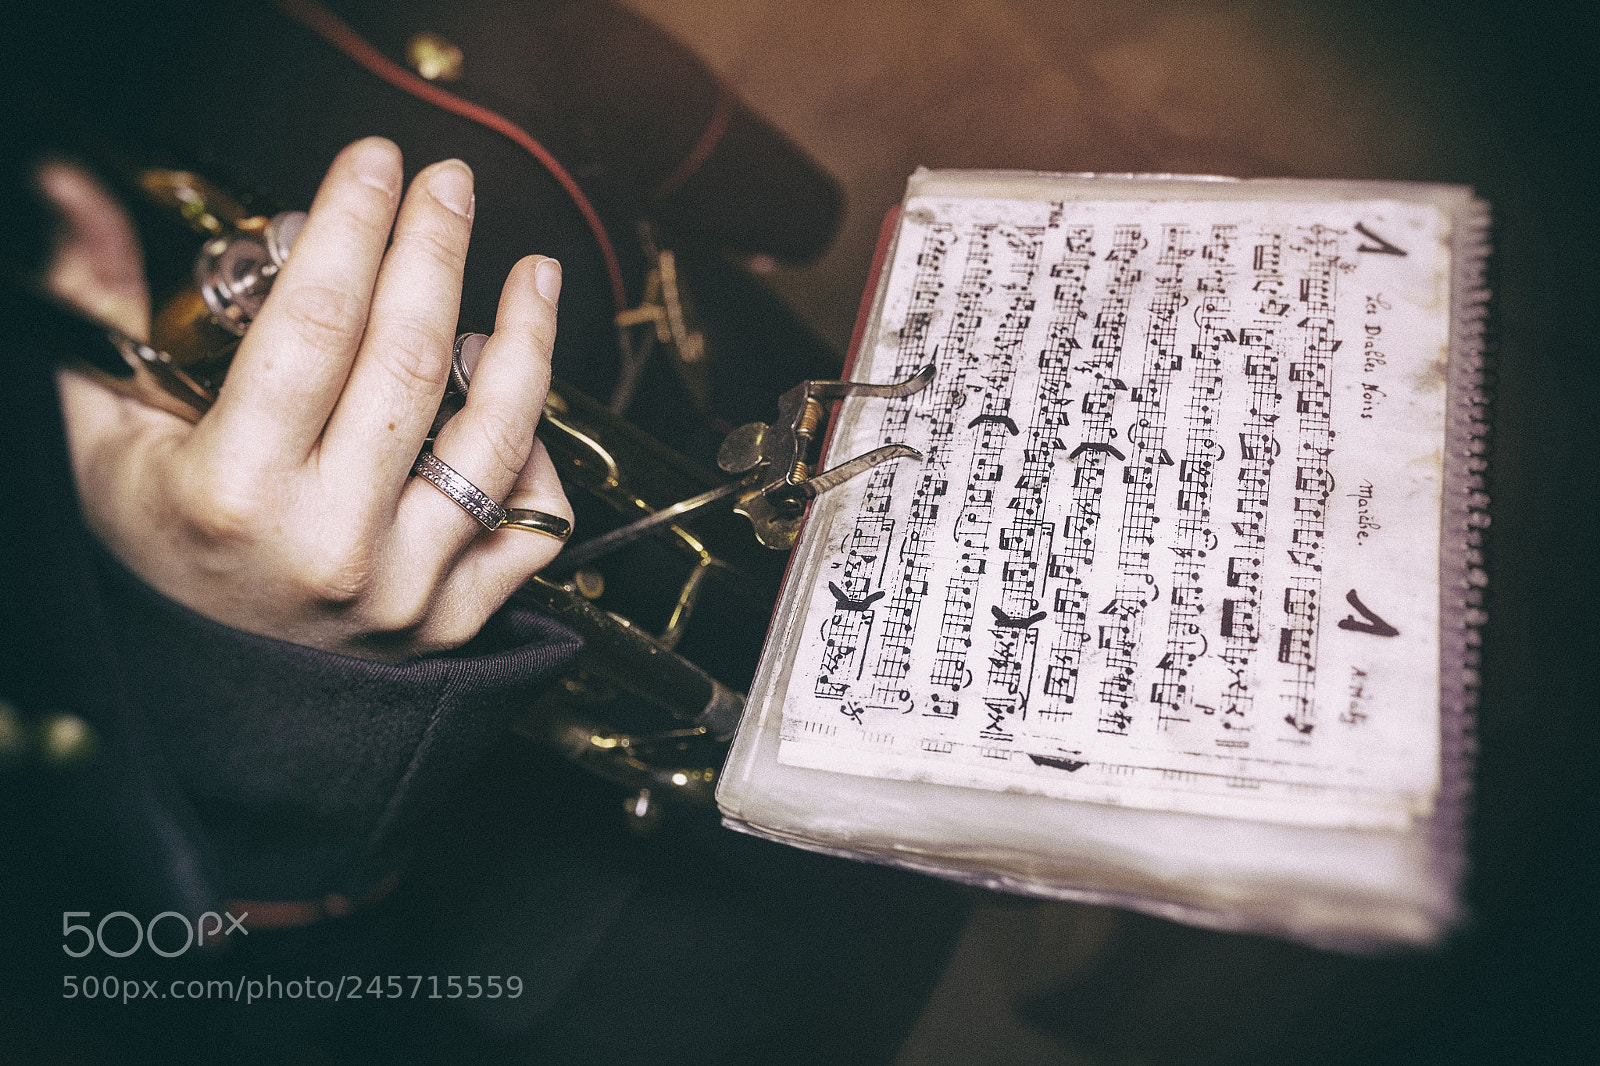 1 Les Diables Noirs Marche. 1
500px
500px.com/photo/245715559